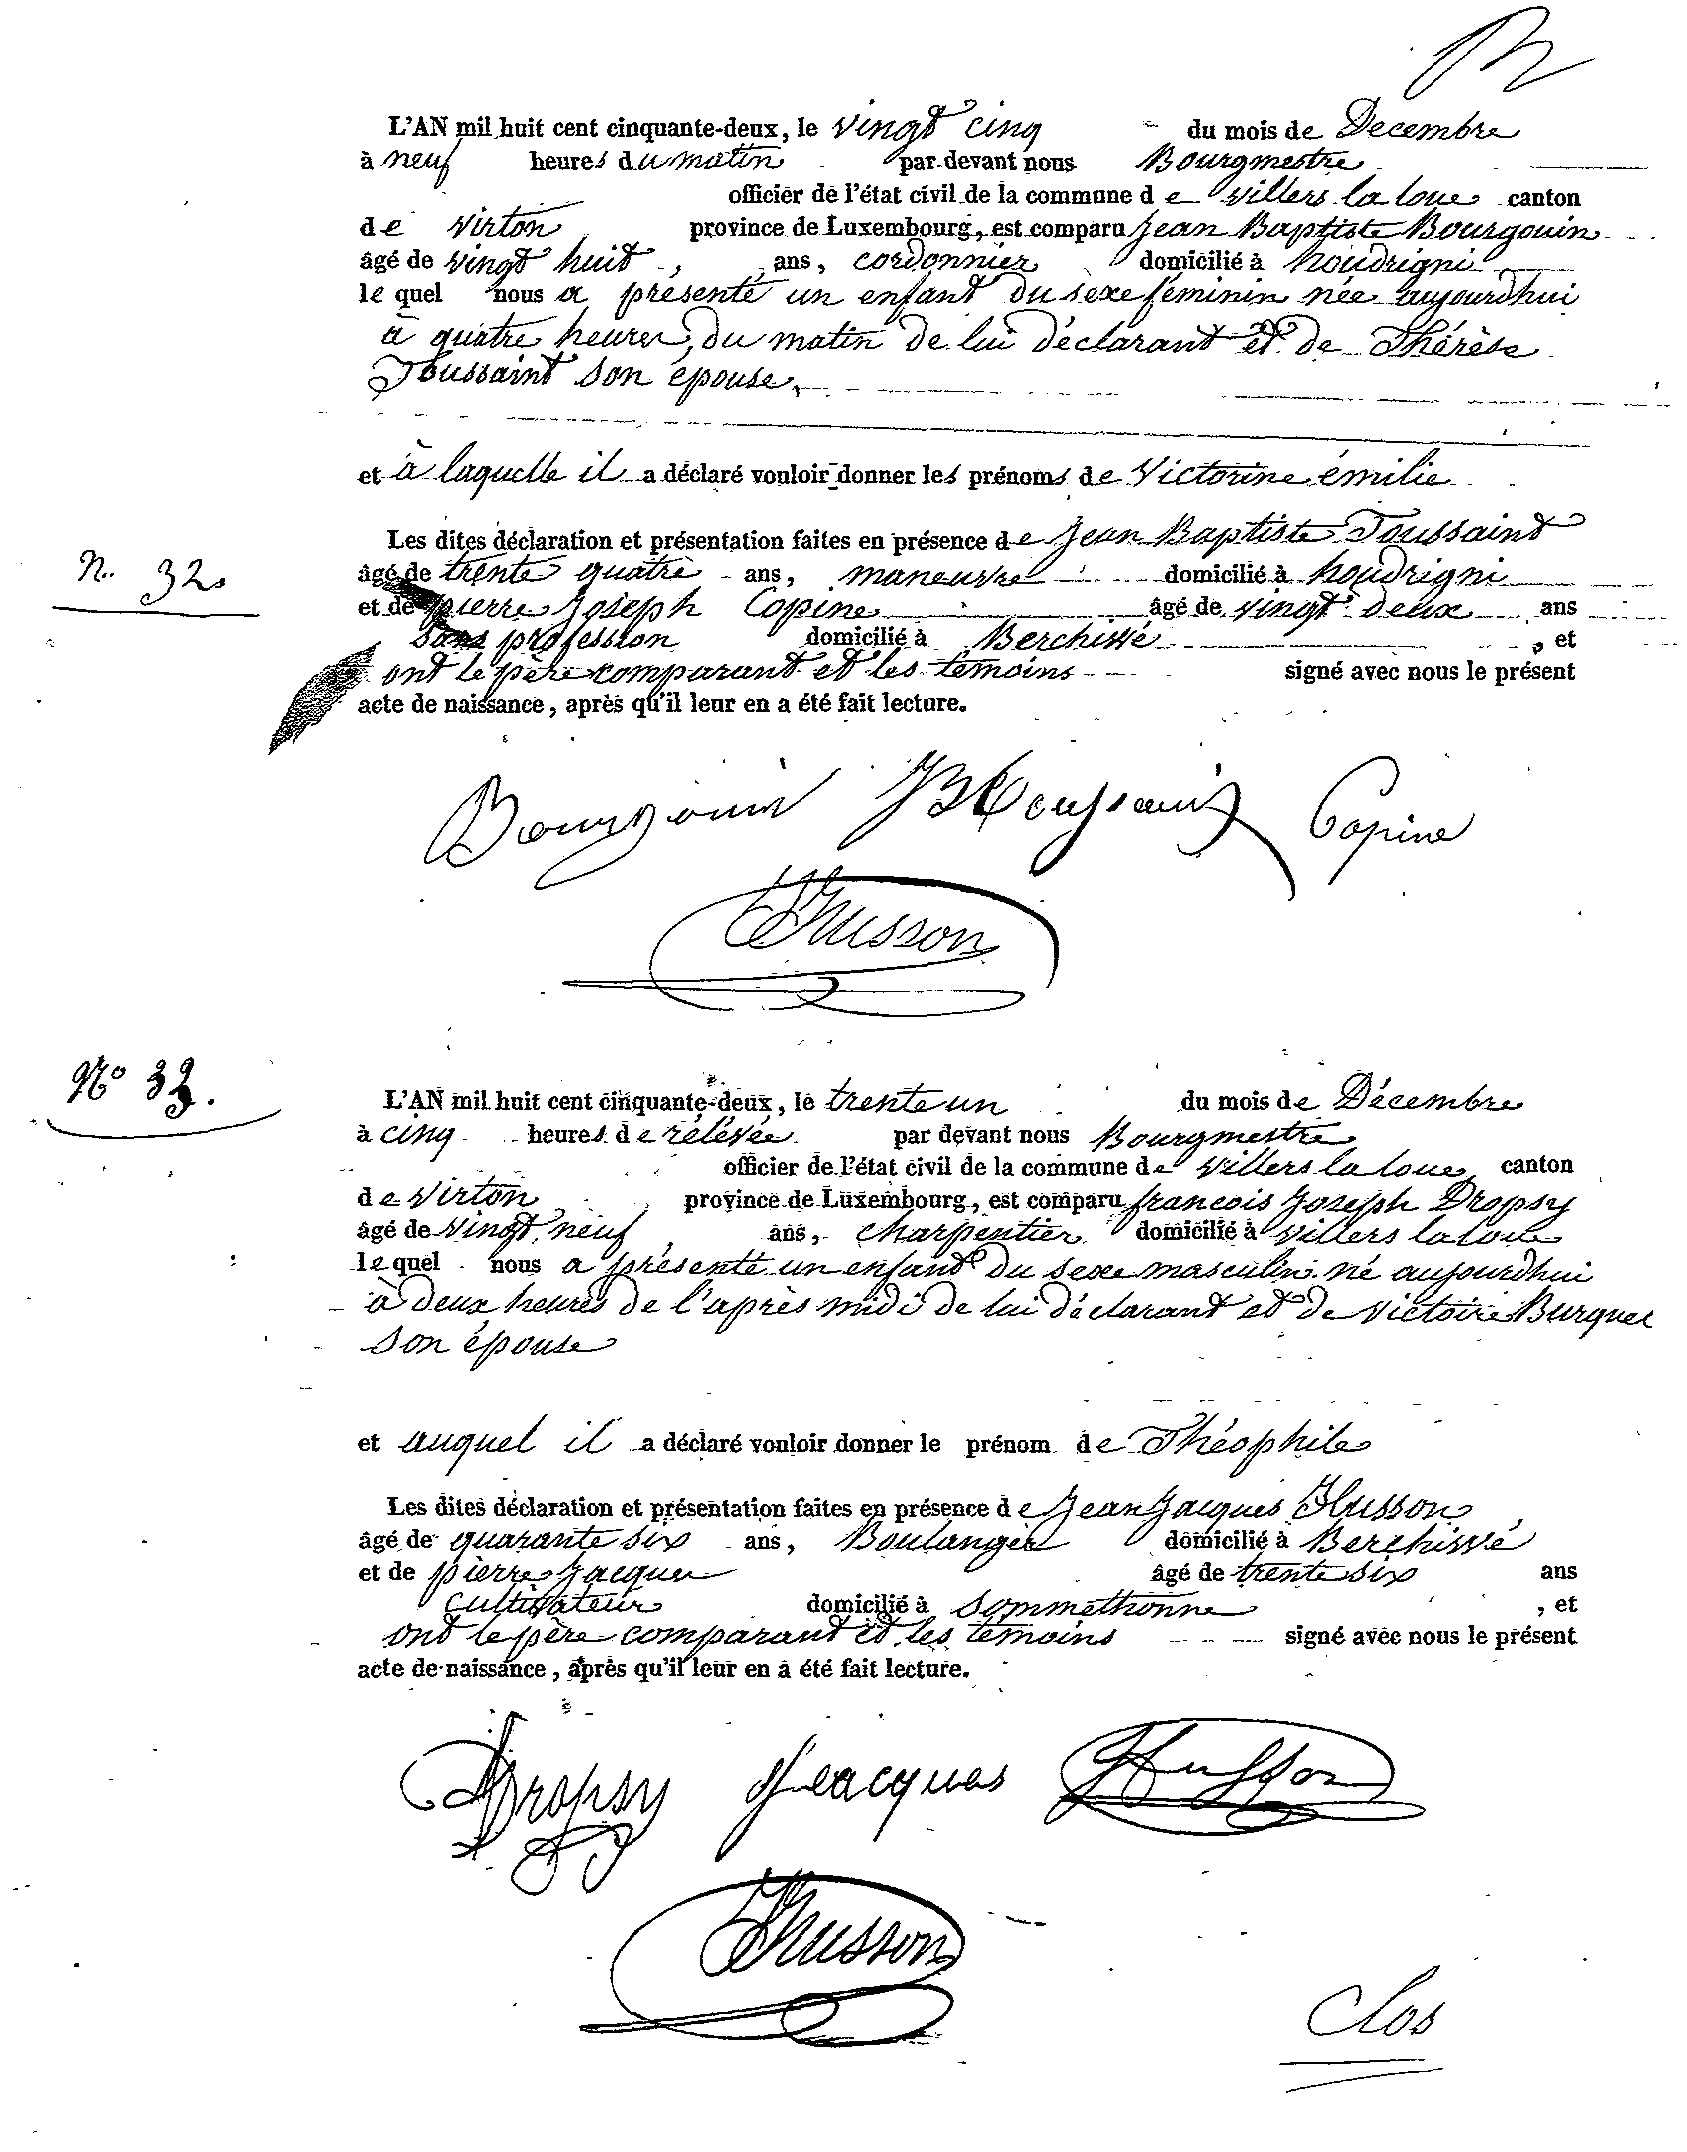 L'AN mil huit cent cinquante-deux, le vingt cinq du mois de Decembre
à neuf heures du matin par devant nous Bourgmestre
officier de l'état civil de la commune de Villers la loue canton
de virton province de Luxembourg, est comparu Jean Baptiste Bourgouin
âgé de vingt huit, ans, cordonnier domicilié à houdrigni
le quel nous a présenté un enfant du sexe féminin née aujourdhui
à quatre heures du matin de lui déclarant et de Thérèse
Toussaint son épouse,
et à laquelle il a déclaré vouloir donner les prénoms de Victorine émilie
Les dites déclaration et présentation faites en présence de Jean Baptiste Toussaint
N. 32.
âgé de trente quatre ans, maneuvre domicilié à houdrigni
et de pierre Joseph Copine âgé de vingt deux ans
sans profession domicilié à Berchivé, et
ont le père comparant et les témoins signé avec nous le présent
acte de naissance, après qu'il leur en a été fait lecture.
Bourgouin JBtoussaint Copine
Husson
N° 33.
L'AN mil huit cent cinquante-deux, le trente un du mois de Décembre
à cinq heures de rélévée par devant nous Bourgmestre
officier de l'état civil de la commune de Villers la loue canton
de Virton province de Luxembourg, est comparu francois Joseph Dropsy
âgé de vingt neuf, ans, charpentier domicilié à Villers la loue
le quel nous a présenté un enfant du sexe masculin né aujourdhui
à deux heures de l'après midi de lui déclarant et de Victoire Burquel
son épouse
et auquel il a déclaré vouloir donner le prénom de Théophile
Les dites déclaration et présentation faites en présence de Jean Jacques Husson,
âgé de quarante six ans, Boulanger domicilié à Berchivé
et de pierre Jacques âgé de trente six ans
cultivateur domicilié à Sommethonne, et
ont le père comparant et les témoins signé avec nous le présent
acte de naissance, après qu'il leur en a été fait lecture.
Dropsy Jacques Husson
Husson
Clos